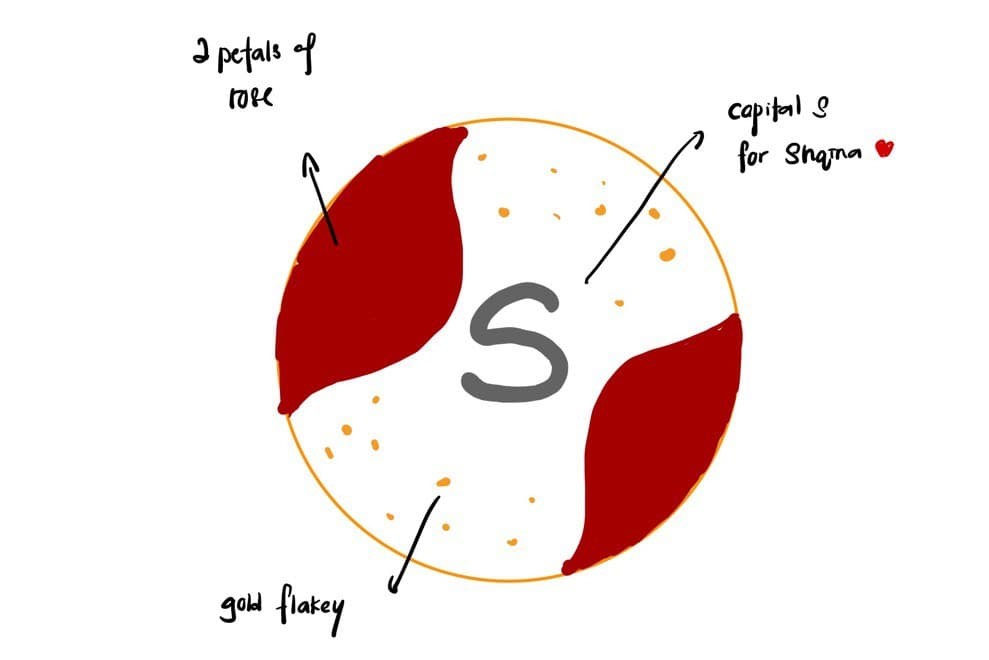 2 petals of
rose
capital S
for Shqma
S
gold flakey